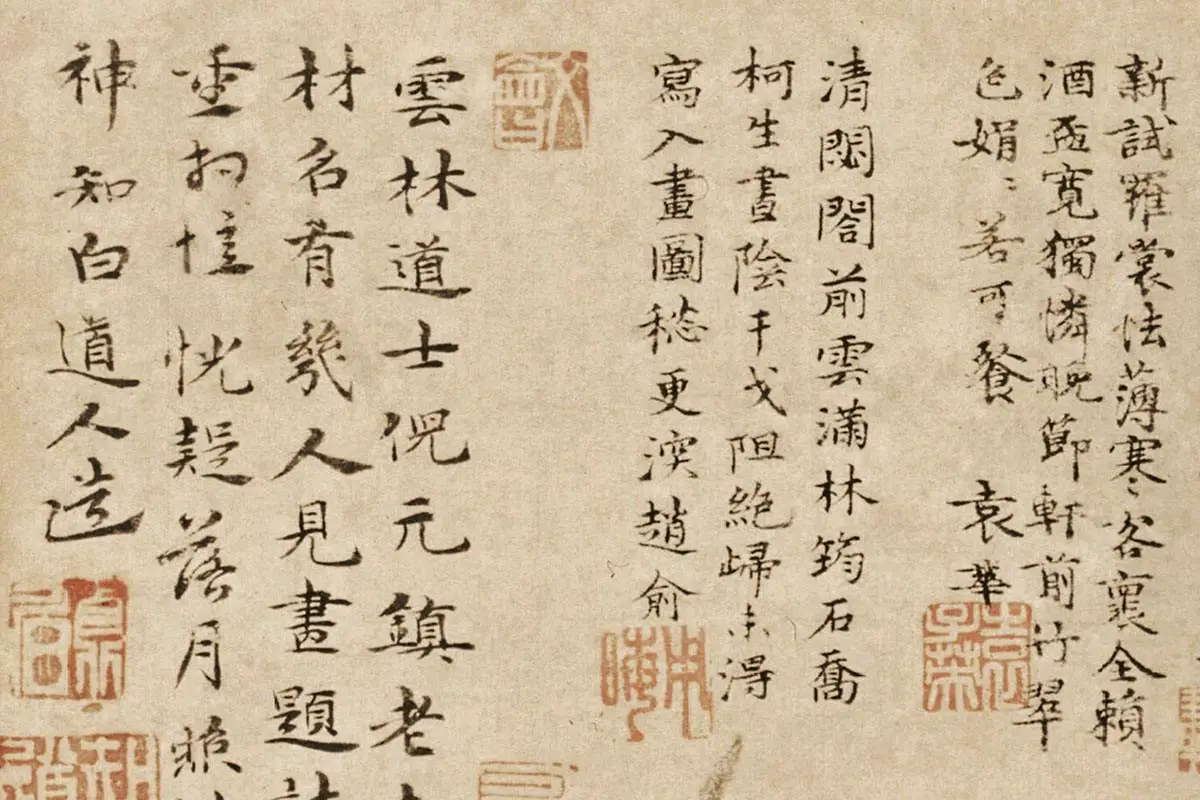 新試羅裳怯薄寒客裏全賴
酒盃寬獨憐晚節軒前竹翠
色娟〻若可餐 袁華
清閟閣前雲滿林筠石喬
柯生晝陰干戈阻絕歸未得
寫入畫圖愁更深趙俞
雲林道士倪元鎮老
材名有幾人見畫題
疑落月照
神知白道人造